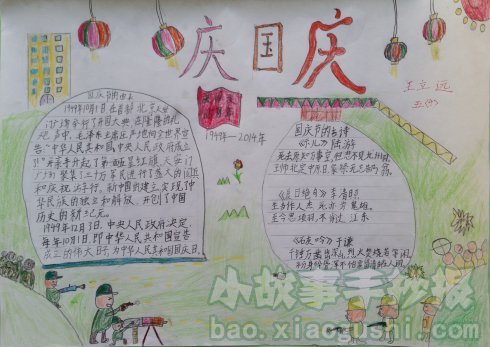 庆国庆
王立远
五(9)
1949—2014年
国庆节的由来
1949年10月1日,在首都北京天安
门广场举行了开国大典,在隆隆的礼
炮声中,毛泽东主席庄严地向全世界宣
告"中华人民共和国中央人民政府成立
了!"并亲手升起了第一面五星红旗。天安门
广场聚集三十万军民进行了盛大的阅兵
和庆祝游行。新中国的建立,实现了中
华民族的独立和解放,开创了中国
历史的新纪元。
1949年12月3日,中央人民政府决定,
每年10月1日即中华人民共和国宣告
成立的伟大日子,为中华人民共和国国庆日。
国庆节的古诗
《示儿》陆游
死去原知万事空,但悲不见九州同。
王师北定中原日,家祭无忘告乃翁。
《夏日绝句》李清照
生当作人杰,死亦为鬼雄。
至今思项羽,不肯过江东
《石灰吟》于谦
千锤万凿出深山,烈火焚烧若等闲。
粉身碎骨浑不怕,要留清白在人间。
小故事手抄报
bao.xiaogushi.com